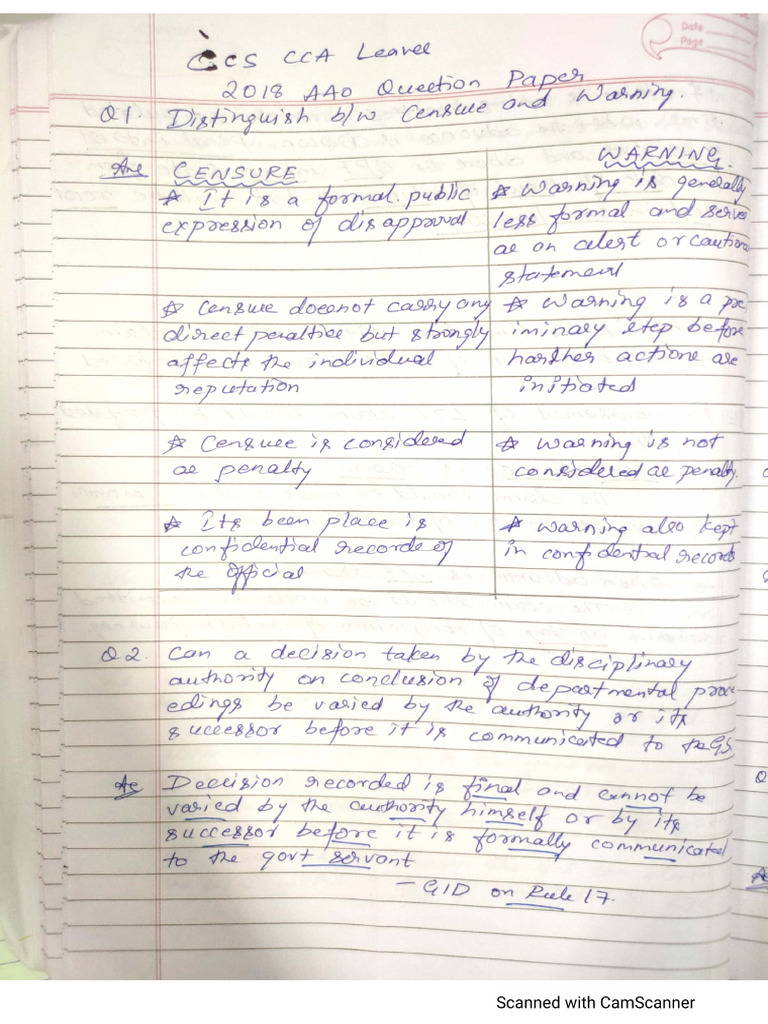 Date
Page
CCS CCA Leavel
2018 AAO Question Paper
Q1. Distinguish b/w Censure and Warning.
Ans CENSURE
* It is a formal public
expression of disapproval
* Censure doesnot carry any
direct penaltise but strongly
affects the individual
reputation
* Censure is considered
as penalty
* Its been place is
confidential records of
the official
WARNING.
* Warning is generally
less formal and serves
as an alert or cautiona
statement
* Warning is a pre
iminary step before
harsher actions are
initiated
* Warning is not
considered as penalty.
* Warning also kept
in confidential records
Q2. Can a decision taken by the disciplinary
authority on conclusion of departmental proce
edings be varied by the authority or its
successor before it is communicated to the GS
As Decision recorded is final and cannot be
varied by the authority himself or by its
successor before it is formally communicated
to the govt servant
- GID on Rule 17.
Scanned with CamScanner